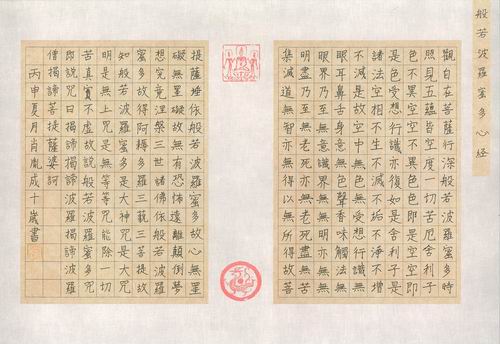 般若波羅蜜多心經
觀自在菩薩行深般若波羅蜜多時
照見五蘊皆空度一切苦厄舍利子
色不異空空不異色色即是空空即
是色受想行識亦復如是舍利子是
諸法空相不生不滅不垢不淨不增
不減是故空中無色無受想行識無
眼耳鼻舌身意無色聲香味觸法無
眼界乃至無意識界無無明亦無無
明盡乃至無老死亦無老死盡無苦
集滅道無智亦無得以無所得故菩
提薩埵依般若波羅蜜多故心無罣
礙無罣礙故無有恐怖遠離顛倒夢
想究竟涅槃三世諸佛依般若波羅
蜜多故得阿耨多羅三藐三菩提故
知般若波羅蜜多是大神咒是大咒
明是無上咒是無等等咒能除一切
苦真實不虛故說般若波羅蜜多咒
即說咒曰揭諦揭諦波羅揭諦波羅
僧揭諦菩提薩婆訶
丙申夏月肖胤成十歲書